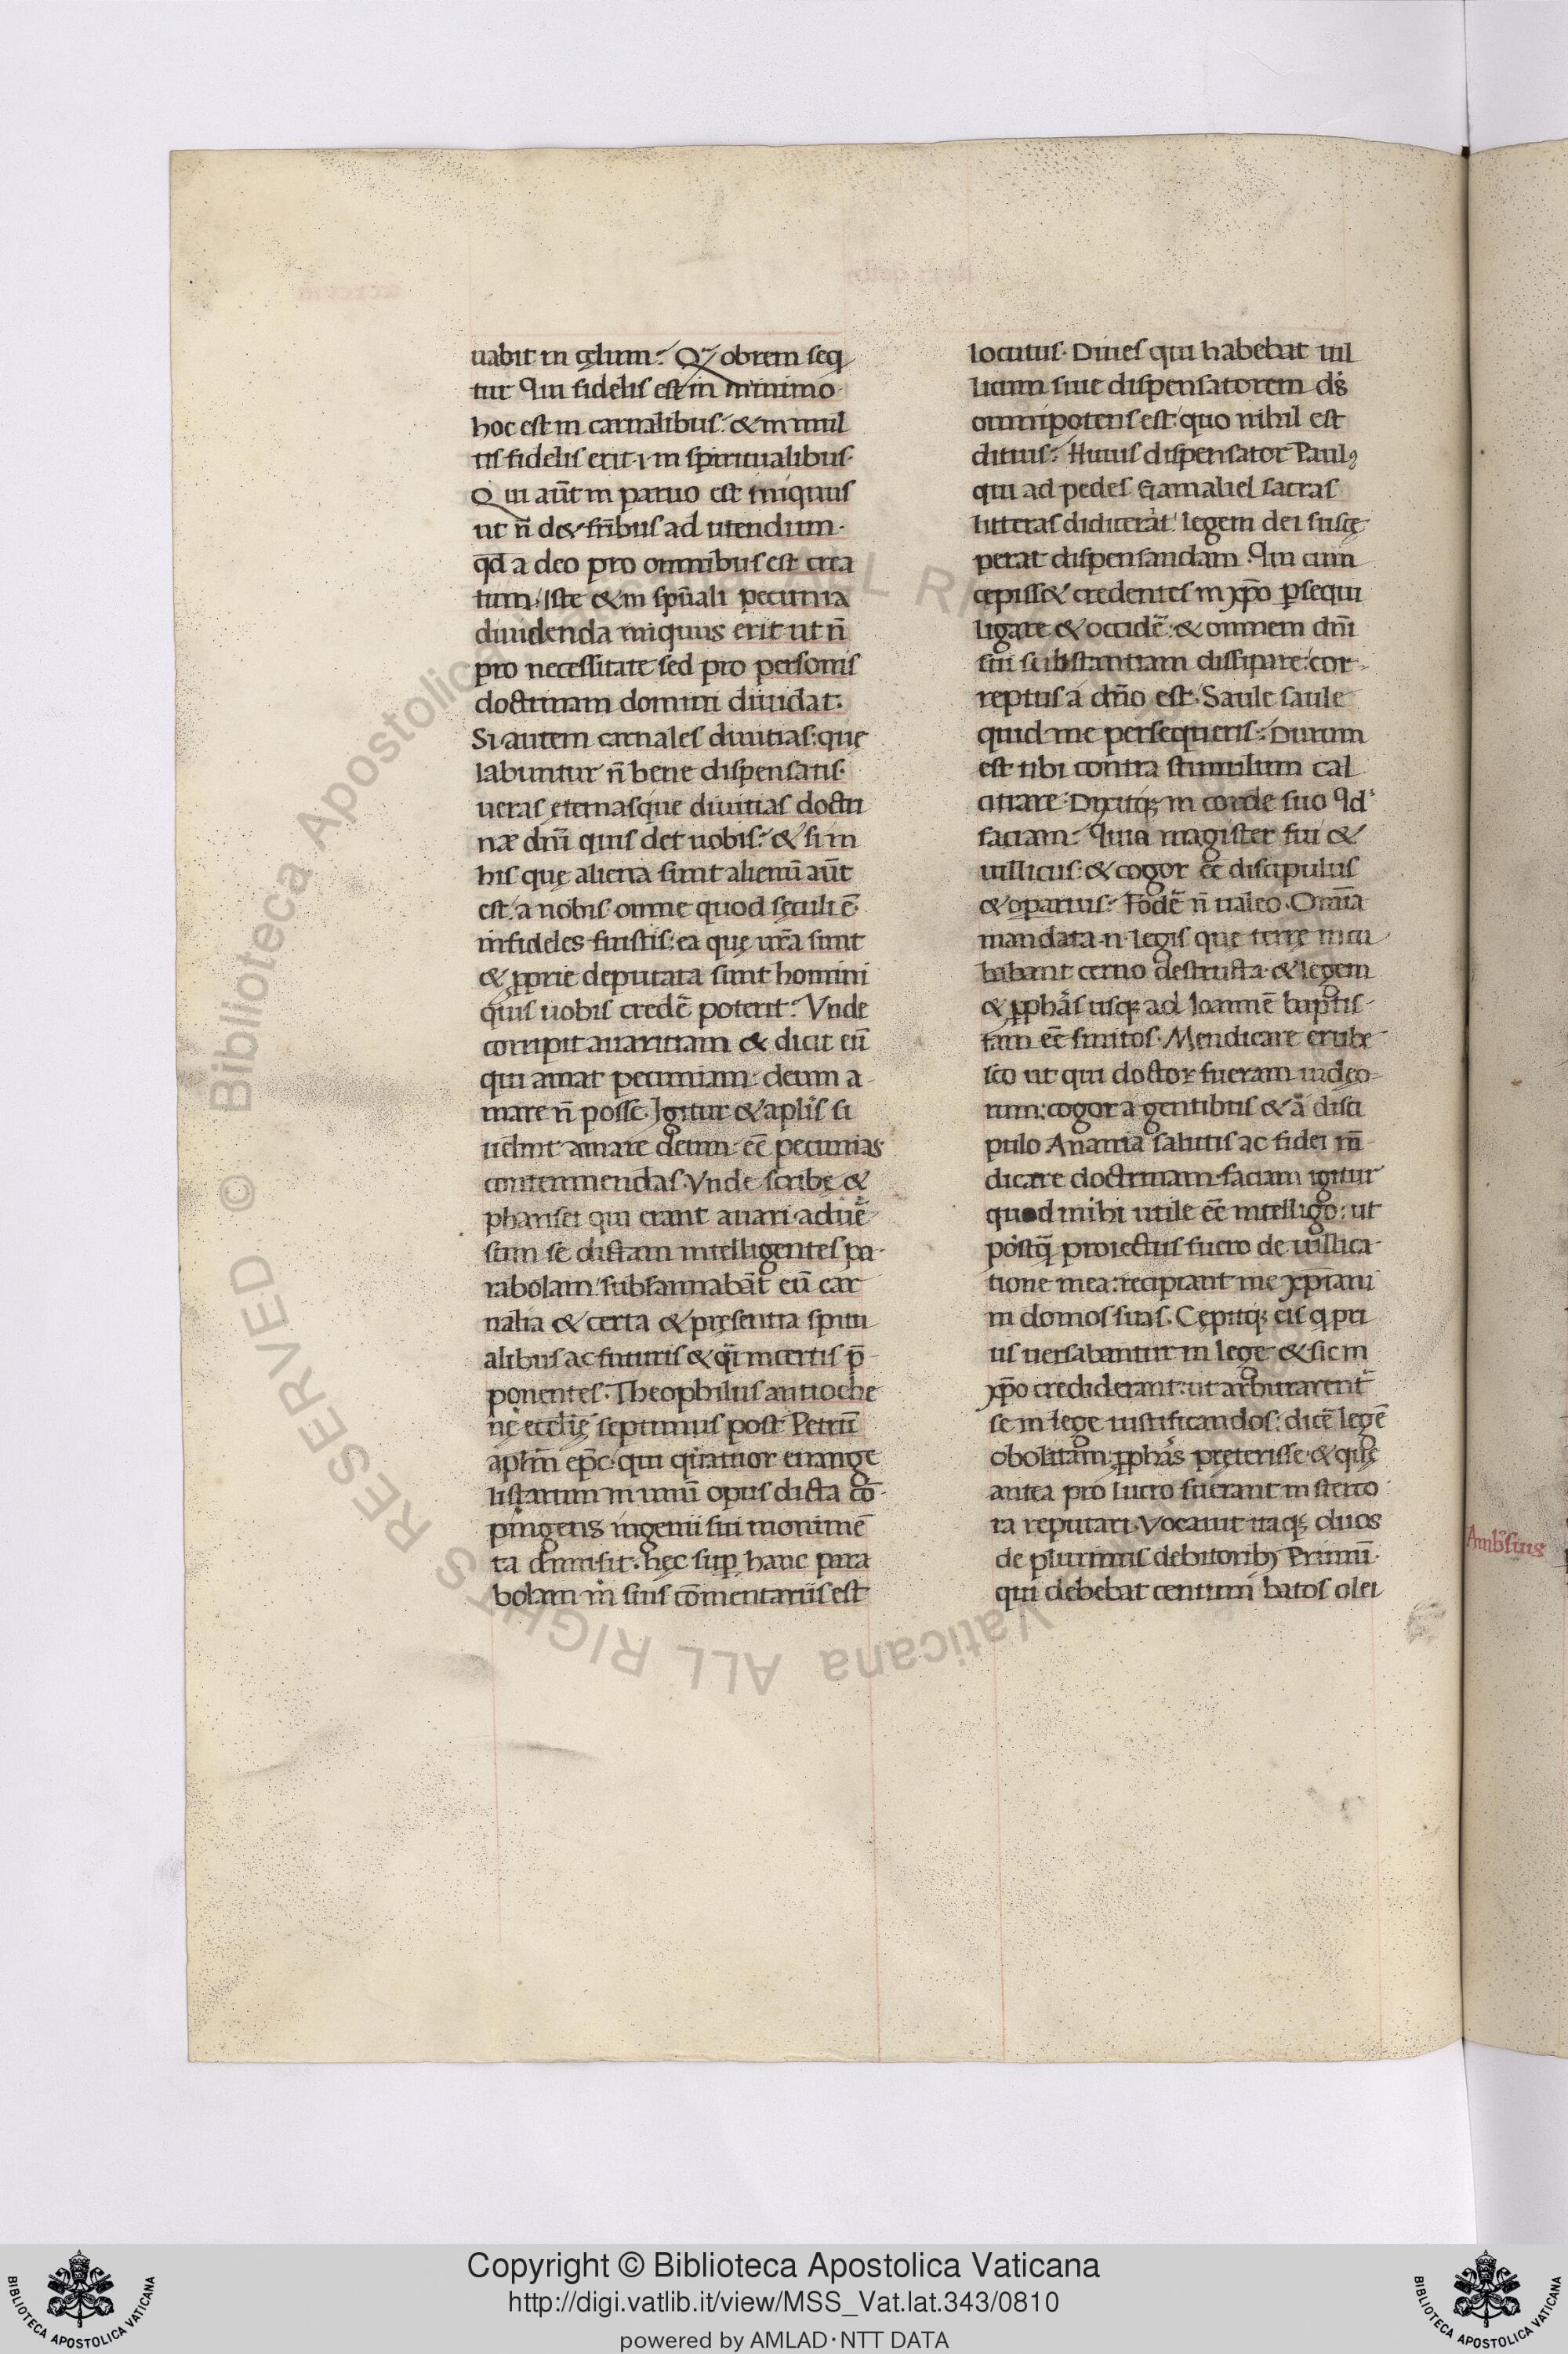 uabit in cęlum? Qꝫ obrem seq
tur Qui fidelis est in minimo
hoc est in carnalibus: & in mul
tis fidelis erit .i. in spiritualibus.
Qui aūt in paruo est iniquus
ut n̄ det fr̄ibus ad utendum.
qd̄ a deo pro omnibus est crea
tum. Iste & in sp̄uali pecunia
diuidenda iniquus erit ut n̄
pro necessitate sed pro personis
doctrinam domini diuidat.
Si autem carnales diuitias: quę
labuntur n̄ bene dispensatis.
ueras ęternasque diuitias doctri
næ dn̄i quis det uobis? & si in
his quę aliena sunt alienū aūt
est. a nobis omne quod sęculi ē.
infideles fuistis: ea quę ur̄a sunt
& ꝓprie deputata sunt homini
quis uobis credē poterit? Vnde
corripit auaritiam & dicit eū
qui amat pecuniam: deum a-
mare n̄ posse. Igitur & apl̄is si
uelint amare deum eē pecunias
contemnendas. Vnde scribę &
pharisei qui erant auari aduē-
sum se dictam intelligentes pa-
rabolam. subsannabāt eū car
nalia & certa & pręsentia spiri
alibus ac futuris & q̄i incertis p̄-
ponentes. Theophilus antioche
nę eccl̄ię septimus post Petrū
aplm̄ ep̄c. qui quatuor euange
listarum in unū opus dicta cō-
pingens ingenii sui monimē
ta dimisit. hęc suꝑ hanc para
bolam in suis cōmentariis est
locutus. Diues qui habebat uil
licum siue dispensatorem ds̄
omnipotens est: quo nihil est
ditius? Huius dispensator Paulꝰ
qui ad pedes Gamaliel sacras
litteras didicerat. legem dei suscę-
perat dispensandam. Qui cum
cepiss& credentes in xp̄o ꝑsequi
ligare & occidē: & omnem dn̄i
sui substantiam dissipare: cor-
reptus a dn̄o est. Saule saule
quid me persequeris? Durum
est tibi contra stimulum cal
citrare. Dixitqꝫ in corde suo Qd
faciam? Quia magister fui &
uillicus: & cogor eē discipulus
& oꝑarius. Fodē n̄ ualeo. Omīa
mandata .n. legis que terrę incu
babant cerno destructa & legem
& ꝓphās usqꝫ ad Ioannē baptis-
tam eē finitos. Mendicare erube
sco ut qui doctor fueram iudęo-
rum: cogor a gentibus & a disci
pulo Anania salutis ac fidei mē-
dicare doctrinam. faciam igitur
quod mihi utile eē intelligo: ut
postq̄ proiectus fuero de uillica-
tione mea: recipiant me xp̄iani
in domos suas. Cępitqꝫ eis q pri
us uersabantur in lege & sic in
xp̄o crediderant: ut arbitrarent̄
se in lege iustificandos: dicē legē
obolitam: ꝓphās pręterisse & quę
antea pro lucro fuerant in sterco
ra reputari. Vocauit itaqꝫ duos
de plurimis debitoribꝫ Primū.
qui debebat centum batos olei
Ambr̄sius
Copyright © Biblioteca Apostolica Vaticana
http://digi.vatlib.it/view/MSS_Vat.lat.343/0810
powered by AMLAD·NTT DATA
BIBLIOTECA APOSTOLICA VATICANA
BIBLIOTECA APOSTOLICA VATICANA
© Biblioteca Apostolica Vaticana ALL RIGHTS RESERVED